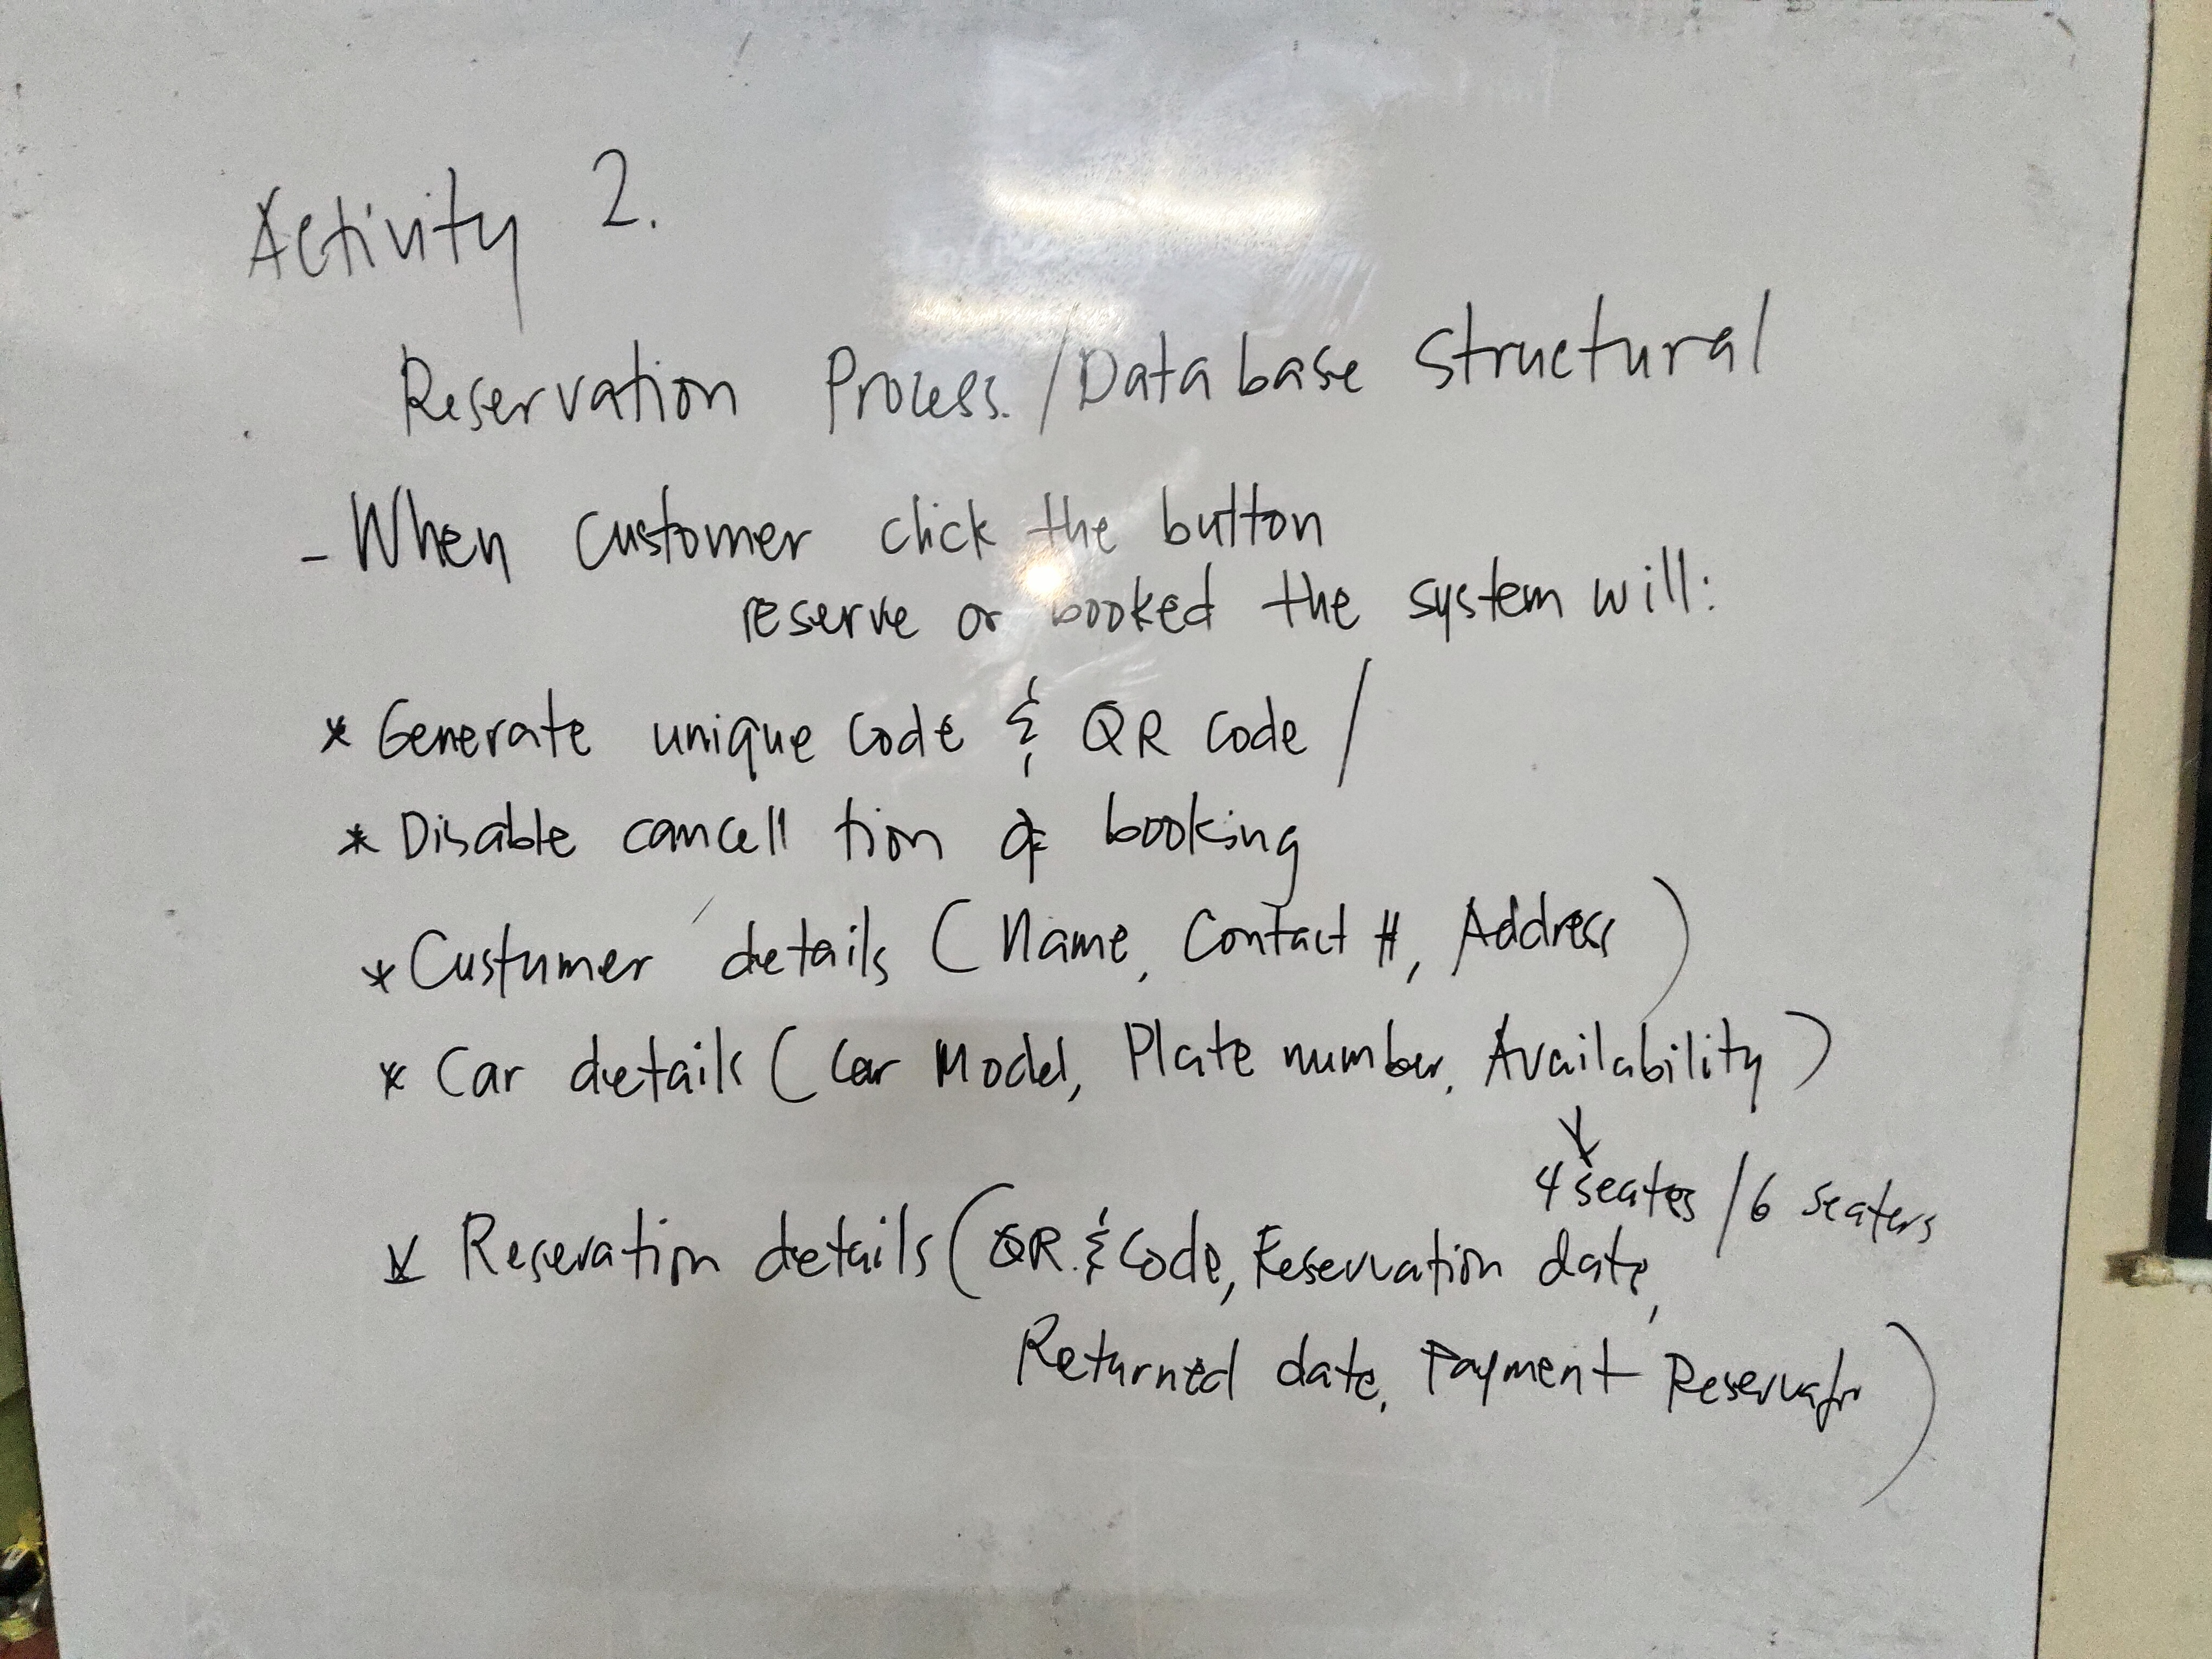 Activity 2.
Reservation Process. / Database Structural
- When Customer click the button
reserve or booked the system will:
* Generate unique code & QR code /
* Disable cancell tion of booking
* Custumer details ( Name, Contact #, Address )
* Car details ( Car Model, Plate number, Availability )
4 seates / 6 seaters
* Reseration details ( QR. & Code, Reservation date,
Returned date, Payment )